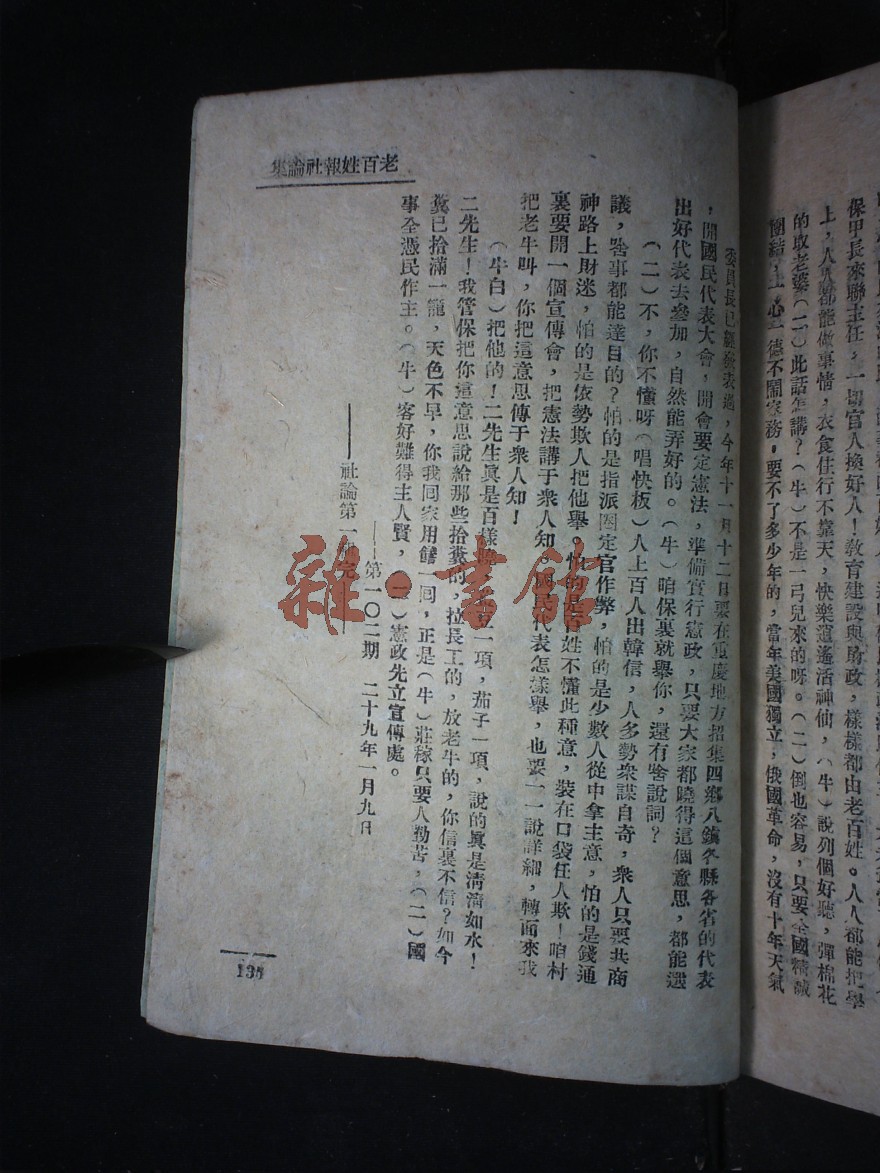 保甲長來聯主任，一切官人換好人！教育建設與財政，樣樣都由老百姓。人人都能把學
上，人人都能做事情，衣食住行不靠天，快樂逍遙活神仙，（牛）說列個好聽，彈棉花
的敗老婆（二）此話怎講？（牛）不是一弓兒來的呀。（二）倒也容易，只要全國精誠
團結，一心一德不鬧家務，要不了多少年的，當年美國獨立，俄國革命，沒有十年天氣
委員長已經發表過，今年十一月十二日要在重慶地方招集四鄉八鎮各縣各省的代表
，開國民代表大會，開會要定憲法，準備實行憲政，只要大家都曉得這個意思，都能選
出好代表去參加，自然能弄好的。（牛）咱保裏就舉你，還有啥說詞？
（二）不，你不懂呀（唱快板）人上百人出韓信，人多勢衆謀自奇，衆人只要共商
議，啥事都能達目的？怕的是指派圈定官作弊，怕的是少數人從中拿主意，怕的是錢通
神路上財迷，怕的是依勢欺人把他舉。怕的是百姓不懂此種意，裝在口袋任人欺！咱村
裏要開一個宣傳會，把憲法講于衆人知。國民代表怎樣舉，也要一一說詳細，轉面來我
把老牛叫，你把這意思傳于衆人知！
（牛白）把他的！二先生眞是百樣 一項，茄子一項，說的眞是清清如水！
二先生！我管保把你這意思說給那些拾糞的，拉長工的，放老牛的，你信裏不信？如今
糞已拾滿一籠，天色不早，你我回家用饍一回，正是（牛）莊稼只要人勤苦，（二）國
事全憑民作主。（牛）客好難得主人賢，（二）憲政先立宣傳處。
——第一〇二期　二十九年一月九日
——社論第一 完——
老百姓報社論集
135
雜·書館